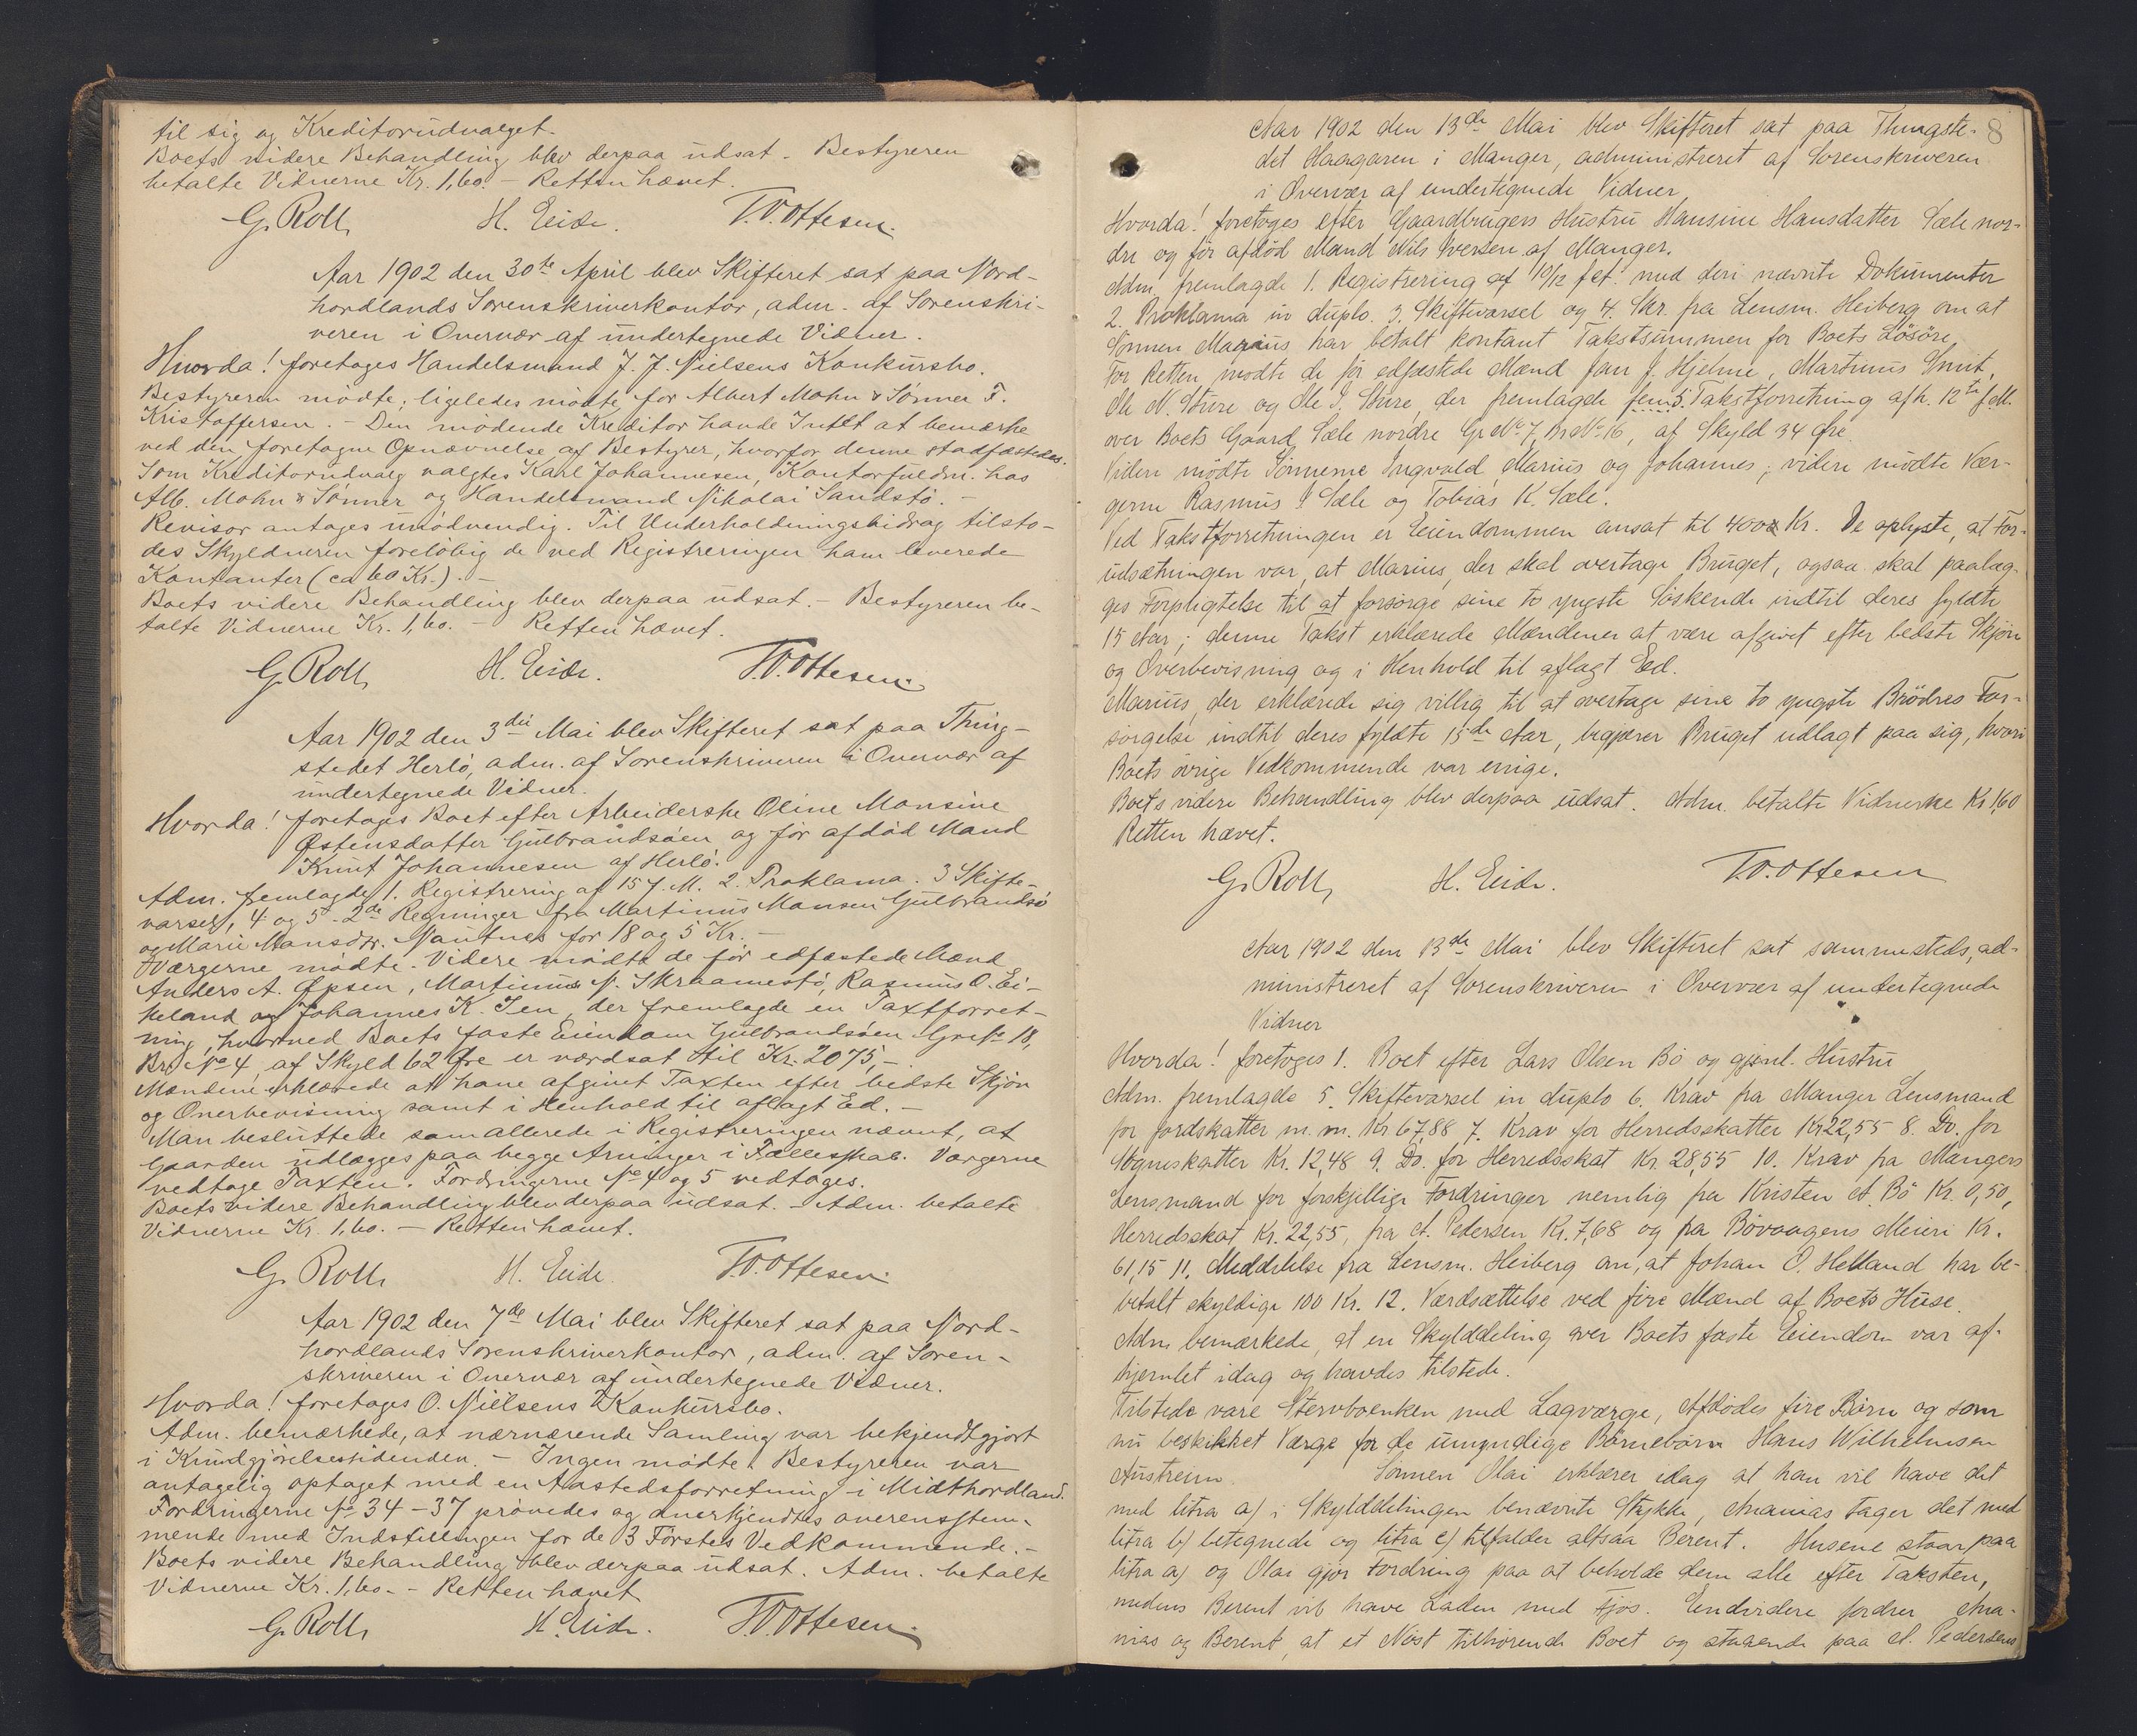 til sig og Kreditorudvalget.
Boets videre Behandling blev derpaa udsat. Bestyreren
betalte Vidnerne Kr. 1,60. – Retten hævet.
G. Roll, H. Eide. T.O. Ottesen.
Aar 1902 den 30te April blev Skifteret sat paa Nord-
hordlands Sorenskriverkontor, adm. af Sorenskri-
veren i Overvær af undertegnede Vidner.
Hvorda! foretoges Handelsmand J. J. Nielsens Konkursbo.
Bestyreren mødte; ligeledes mødte for Albert Mohn & Sønner F.
Kristoffersen. – Den mødende Kreditor havde Intet at bemærke
ved den foretagne Opnævnelse af Bestyrer, hvorfor denne stadfæstedes.
Som Kreditorudvalg valgtes Karl Johannesen, Kontorfuldm. hos
Alb. Mohn & Sønner og Handelsmand Nikolai Sandstø. –
Revisor antages unødvendig. Til Underholdningsbidrag tilsto-
des Skyldneren foreløbig de ved Registreringen ham leverede
Kontanter (ca 60 Kr.). –
Boets videre Behandling blev derpaa udsat. – Bestyreren be-
talte Vidnerne Kr. 1,60. – Retten hævet.
G. Roll, H. Eide. T.O. Ottesen.
Aar 1902 den 3die Mai blev Skifteret sat paa Thing-
stedet Herlø, adm. af Sorenskriveren i Overvær af
undertegnede Vidner.
Hvorda! foretoges Boet efter Arbeiderske Oline Monsine
Østensdatter Gulbrandsøen og før afdød Mand
Knut Johannesen af Herlø.
Adm. fremlagde 1. Registrering af 15 f. M. 2. Proklama. 3 Skifte-
varsel, 4 og 5 - 2de Regninger fra Martinus Monsen Gulbrandsø
og Marie Monsdtr. Nautnes for 18 og 5 Kr. –
Værgerne mødte. Videre mødte de før edfæstede Mænd
Anders A. Øpsen, Martinus N. Skraamestø, Rasmus O. Ei-
keland og Johannes K. Jen, der fremlagde en Taxtforret-
ning, hvorved Boets faste Eiendom Gulbrandsøen Gr. No 18,
Br. No 4, af Skyld 62 Øre er værdsat til Kr. 2075,-
Mændene erklærede at have afgivet Taxten efter bedste Skjøn
og Overbevisning samt i Henhold til aflagt Ed. –
Man besluttede som allerede i Registreringen nævnt, at
Gaarden udlægges paa begge Arvinger i Fællesskab. Værgerne
vedtoge Taxten. Fordringerne No 4 og 5 vedtoges.
Boets videre Behandling blev derpaa udsat. – Adm. betalte
Vidnerne Kr. 1,60. – Retten hævet.
G. Roll, H. Eide. T.O. Ottesen.
Aar 1902 den 7de Mai blev Skifteret sat paa Nord-
hordlands Sorenskriverkontor, adm. af Soren-
skriveren i Overvær af undertegnede Vidner.
Hvorda! foretoges O. Nielsens Konkursbo.
Adm. bemærkede, at nærværende Samling var bekjendtgjort
i Kundgjørelsestidenden. – Ingen mødte. Bestyreren var
antagelig optaget med en Aastedsforretning i Midthordland.
Fordringerne No 34 – 37 prøvedes og anerkjendtes overensstem-
mende med Indstillingen for de 3 Førstes Vedkommende. –
Boets videre Behandling blev derpaa udsat. Adm. betalte
Vidnerne Kr. 1,60. – Retten hævet
G. Roll, H. Eide. T.O. Ottesen.
8
Aar 1902 den 13de Mai blev Skifteret sat paa Thingste-
det Haagaren i Manger, administreret af Sorenskriveren
i Overvær af undertegnede Vidner
Hvorda! foretoges efter Gaardbrugers Hustru Hansine Hansdatter Sæle nor-
dre og før afdød Mand Nils Iversen af Manger.
Adm. fremlagde 1. Registrering af 10/12 f.A. med deri nævnte Dokumenter
2. Proklama in duplo. 3. Skiftevarsel og 4. Skr. fra Lensm. Heiberg om at
Sønnen Marius har betalt kontant Takstsummen for Boets Løsøre.
For Retten mødte de før edfæstede Mænd Jan J. Hjelme, Martinus Smit,
Ole N. Sture og Ole I. Sture, der fremlagde fem 5. Takstforretning afh. 12te f.M.
over Boets Gaard, Sæle nordre Gr. No. 7, Br. No. 16, af Skyld 34 Øre.
Videre mødte Sønnerne Ingvald, Marius og Johannes; videre mødte Vær-
gerne Rasmus I. Sæle og Tobias K. Sæle.
Ved Takstforretningen er Eiendommen ansat til 400 Kr. De oplyste, at For-
udsætningen var, at Marius, der skal overtage Bruget, ogsaa skal paalæg-
ges Forpligtelse til at forsørge sine to yngste Søskende indtil deres fyldte
15 Aar; denne Takst erklærede Mændene at være afgivet efter bedste Skjøn
og Overbevisning og i Henhold til aflagt Eed.
Marius, der erklærede sig villig til at overtage sine to yngste Brødres For-
sørgelse indtil deres fyldte 15de Aar, begjærer Bruget udlagt paa sig, hvori
Boets øvrige Vedkommende var enige.
Boets videre Behandling blev derpaa udsat. Adm. betalte Vidnerne Kr 1,60
Retten hævet.
G. Roll, H. Eide. T.O. Ottesen
Aar 1902 den 13de Mai blev Skifteret sat sammesteds, ad-
ministreret af Sorenskriveren i Overvær af undertegnede
Vidner
Hvorda! foretoges 1. Boet efter Lars Olsen Bø og gjenl. Hustru
Adm. fremlagde 5. Skiftevarsel in duplo 6. Krav fra Manger Lensmand
for Jordskatter m. m. Kr 67,88 7. Krav for Herredsskatter Kr 22,55 8. Do. for
Sogneskatter Kr. 12,48 9. Do. for Herredsskat Kr. 28,55 10. Krav fra Mangers
Lensmand for forskjellige Fordringer nemlig fra Kristen A. Bø Kr. 0,50,
Herredsskat Kr. 22,55, fra A. Pedersen Kr. 7,68 og fra Bøvaagens Meieri Kr.
61,15 11. Meddelelse fra Lensm. Heiberg om, at Johan O. Helland har be-
betalt skyldige 100 Kr. 12. Værdsættelse ved fire Mænd af Boets Huse.
Adm. bemærkede, at en Skylddeling over Boets faste Eiendom var af-
hjemlet idag og havdes tilstede.
Tilstede vare Stervboenken med Lagværge, Afdødes fire Børn og som
nu beskikket Værge for de umyndige Børnebørn Hans Wilhelmsen
Austreim. Sønnen Olai erklærer idag at han vil have det
med litra a) i Skylddelingen benævnte Stykke, Ananias tager det med
litra b) betegnede og litra c) tilfalder altsaa Berent. Husene staar paa
litra a) og Olai gjør Fordring paa at beholde dem alle efter Taksten,
medens Berent vil have Laden med Fjøs. Endvidere fordrer Ana-
nias og Berent, at et Nøst tilhørende Boet og staaende paa A. Pedersens